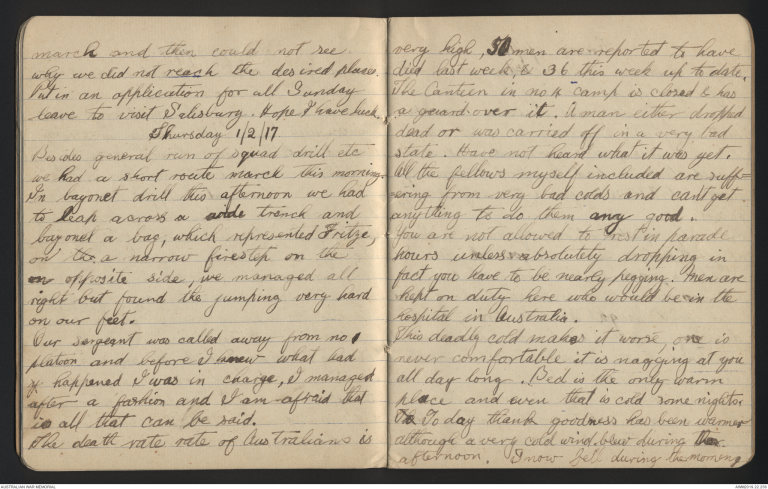 march and then could not see
why we did not reach the desired place.
Put in an application for all Sunday
leave to visit Salisbury. Hope I have luck.
Thursday 1/2/17
Besides general run of squad drill etc
we had a short route march this morning.
In bayonet drill this afternoon we had
to leap across a wide trench and
bayonet a bag, which represented Fritz,
on the a narrow firestep on the
on opposite side, we managed all
right but found the jumping very hard
on our feet.
Our sergeant was called away from no 1
platoon and before I knew what had
happened I was in charge, I managed
after a fashion and I am afraid that
is all that can be said.
The death rate rate of Australians is
very high, 50 men are reported to have
died last week, & 36 this week up to date.
The Canteen in no 4 camp is closed & has
a guard over it. A man either dropped
dead or was carried off in a very bad
state. Have not heard what it was yet.
All the fellows myself included are suff=
=ering from very bad colds and cant get
anything to do them any good.
You are not allowed to rest in parade
hours unless absolutely dropping in
fact you have to be nearly pegging. Men are
kept on duty here who would be in the
hospital in Australia.
This deadly cold makes it worse, one is
never comfortable it is nagging at you
all day long. Bed is the only warm
place and even that is cold some nights.
To day thank goodness has been warmer
although a very cold wind blew during the
afternoon. Snow fell during the morning
AUSTRALIAN WAR MEMORIAL